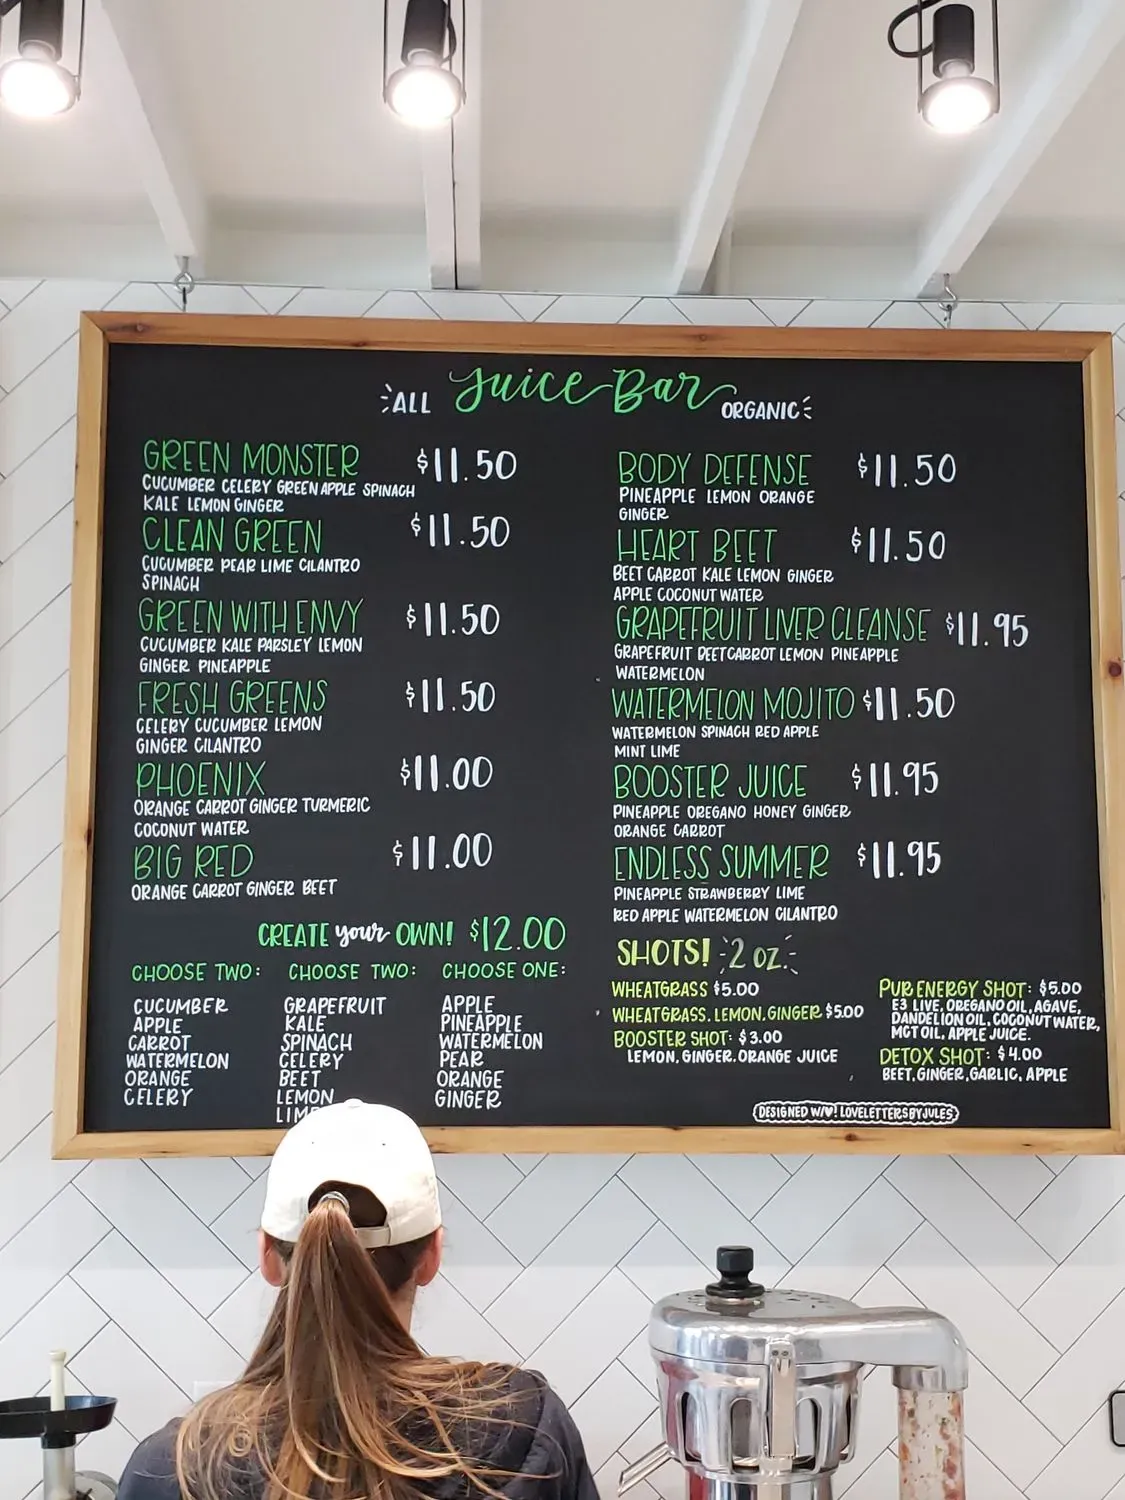 ALL Juice Bar ORGANIC
GREEN MONSTER $11.50
CUCUMBER CELERY GREEN APPLE SPINACH
KALE LEMON GINGER
CLEAN GREEN $11.50
CUCUMBER PEAR LIME CILANTRO
SPINACH
GREEN WITH ENVY $11.50
CUCUMBER KALE PARSLEY LEMON
GINGER PINEAPPLE
FRESH GREENS $11.50
CELERY CUCUMBER LEMON
GINGER CILANTRO
PHOENIX $11.00
ORANGE CARROT GINGER TURMERIC
COCONUT WATER
BIG RED $11.00
ORANGE CARROT GINGER BEET
BODY DEFENSE $11.50
PINEAPPLE LEMON ORANGE
GINGER
HEART BEET $11.50
BEET CARROT KALE LEMON GINGER
APPLE COCONUT WATER
GRAPEFRUIT LIVER CLEANSE $11.95
GRAPEFRUIT BEET CARROT LEMON PINEAPPLE
WATERMELON
WATERMELON MOJITO $11.50
WATERMELON SPINACH RED APPLE
MINT LIME
BOOSTER JUICE $11.95
PINEAPPLE OREGANO HONEY GINGER
ORANGE CARROT
ENDLESS SUMMER $11.95
PINEAPPLE STRAWBERRY LIME
RED APPLE WATERMELON CILANTRO
CREATE your OWN! $12.00
CHOOSE TWO:
CUCUMBER
APPLE
CARROT
WATERMELON
ORANGE
CELERY
CHOOSE TWO:
GRAPEFRUIT
KALE
SPINACH
CELERY
BEET
LEMON
LIME
CHOOSE ONE:
APPLE
PINEAPPLE
WATERMELON
PEAR
ORANGE
GINGER
SHOTS! 2 OZ.
WHEATGRASS $5.00
WHEATGRASS. LEMON. GINGER $5.00
BOOSTER SHOT: $3.00
LEMON, GINGER. ORANGE JUICE
PUR ENERGY SHOT: $5.00
E3 LIVE, OREGANO OIL, AGAVE,
DANDELION OIL, COCONUT WATER,
MCT OIL, APPLE JUICE.
DETOX SHOT: $4.00
BEET, GINGER, GARLIC, APPLE
DESIGNED W/♥! LOVELETTERSBYJULES